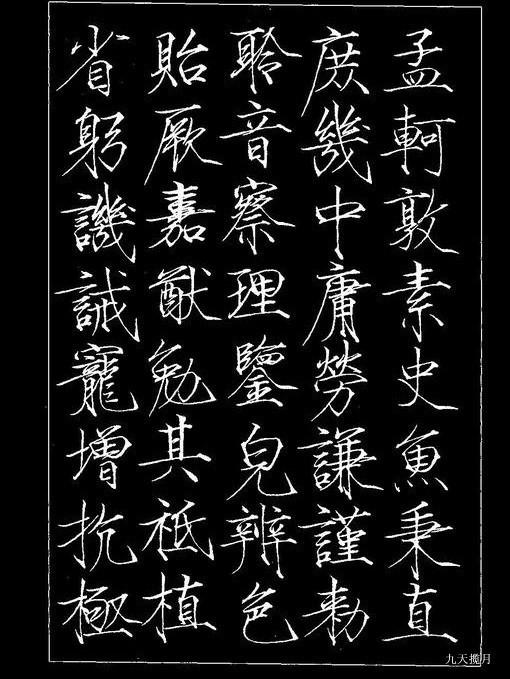 孟軻敦素史魚秉直
庶幾中庸勞謙謹勅
聆音察理鑒皃辨色
貽厥嘉猷勉其祗植
省躬譏誡寵增抗極
九天揽月